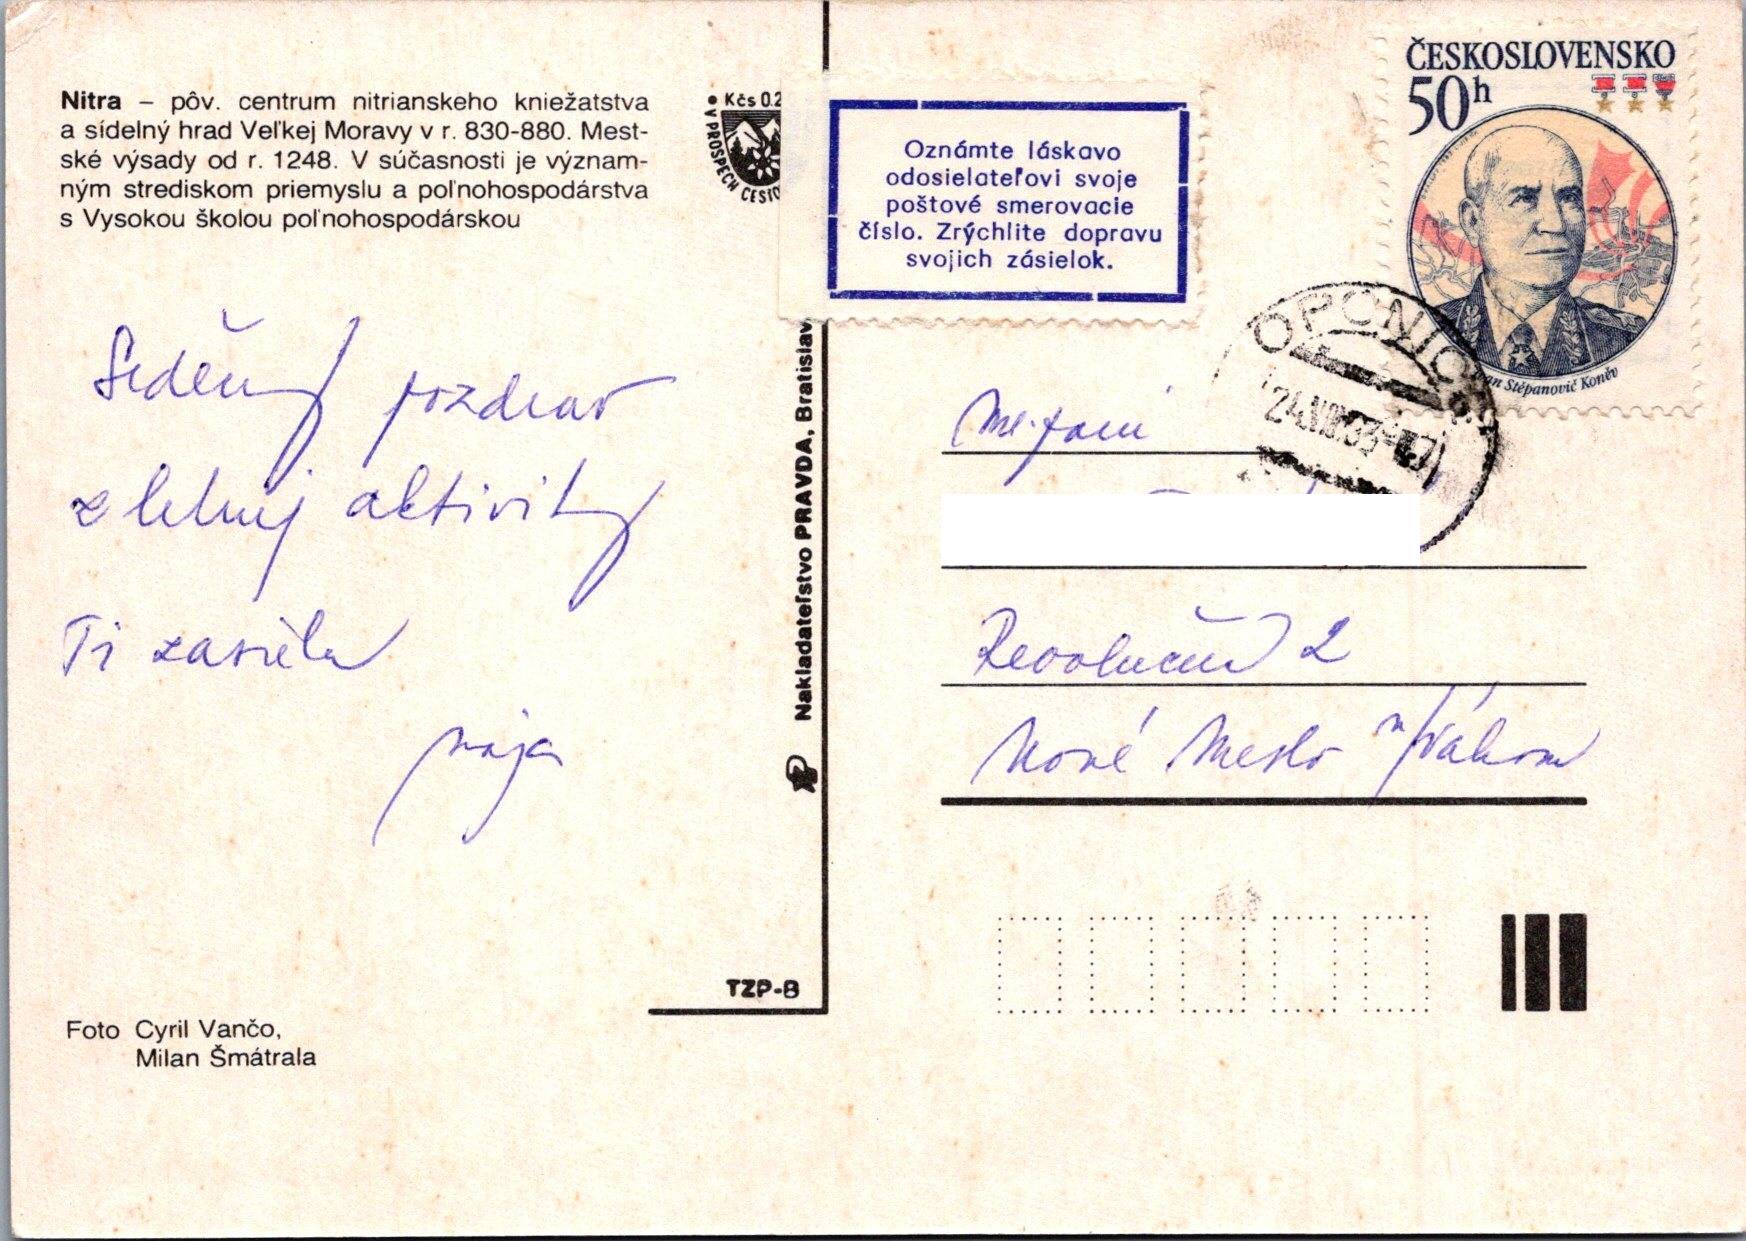 Nitra – pôv. centrum nitrianskeho kniežatstva
a sídelný hrad Veľkej Moravy v r. 830-880. Mest-
ské výsady od r. 1248. V súčasnosti je význam-
ným strediskom priemyslu a poľnohospodárstva
s Vysokou školou poľnohospodárskou
• Kčs 0.2
V PROSPECH
Oznámte láskavo
odosielateľovi svoje
poštové smerovacie
číslo. Zrýchlite dopravu
svojich zásielok.
ČESKOSLOVENSKO
50h
Ivan Stěpanovič Koněv
24.VIII.83
Srdečný pozdrav
z letnej aktivity
Ti zasiela
Nakladateľstvo PRAVDA, Bratislav
Revolučná 2
Nové Mesto n/Váhom
TZP-B
Foto Cyril Vančo,
Milan Šmátrala